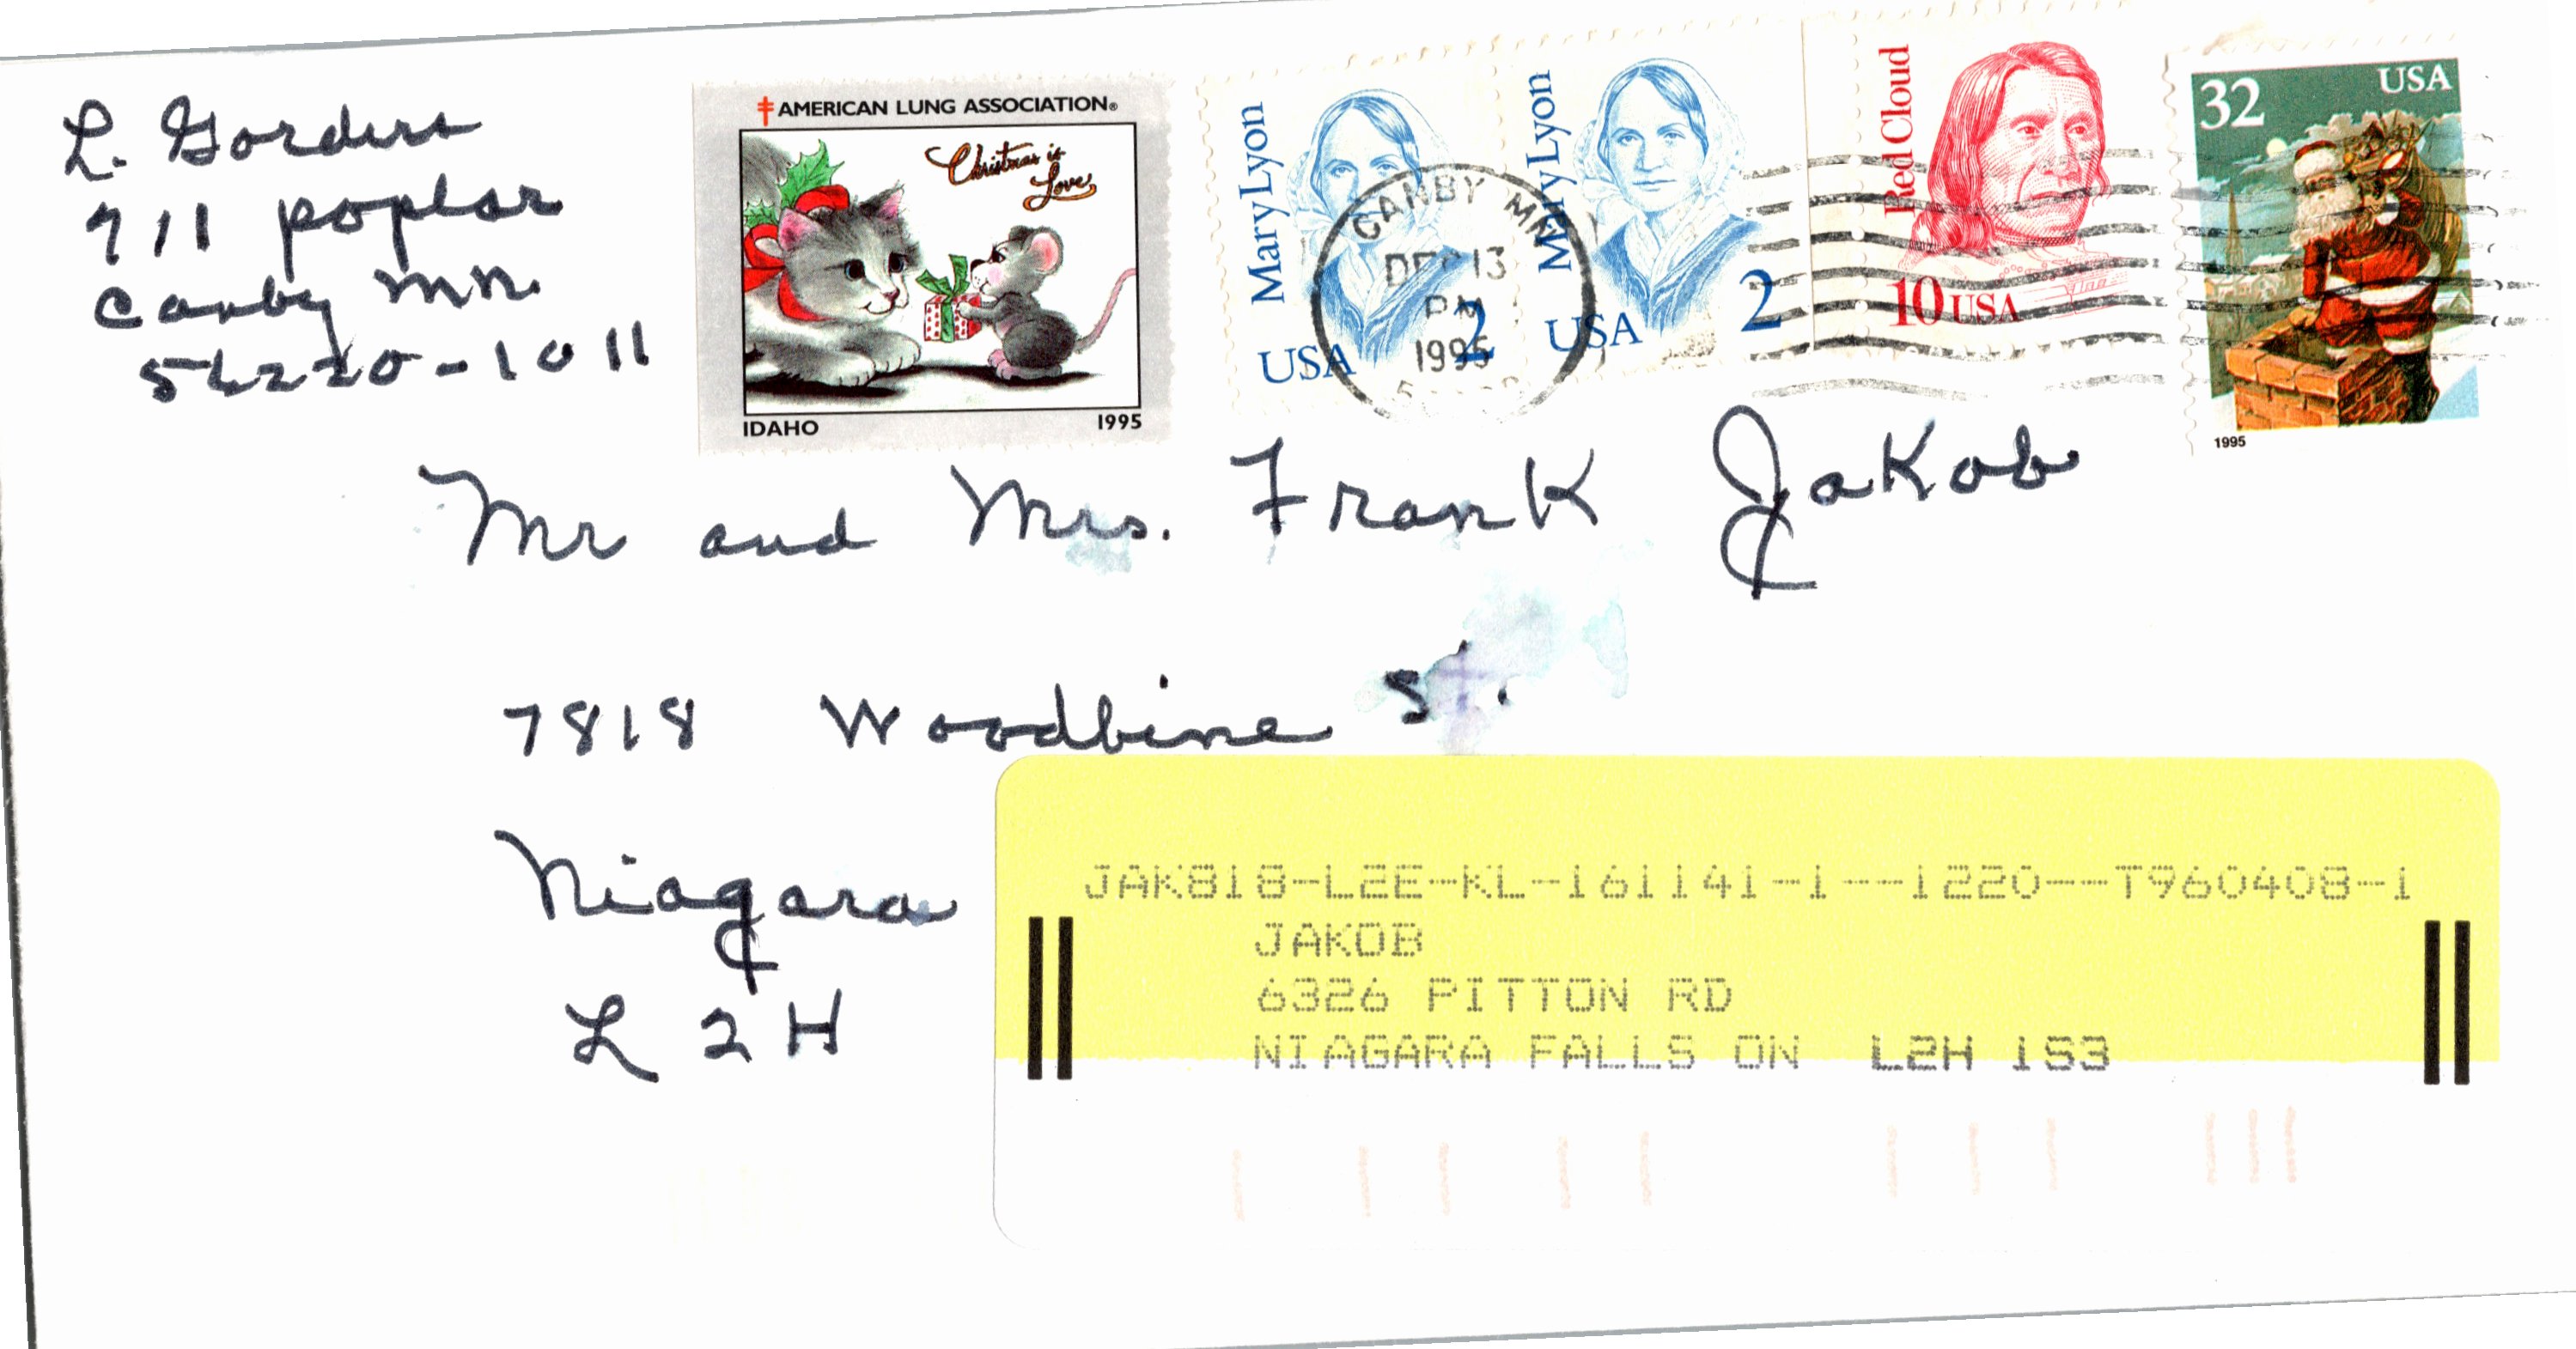 L. Gorders
711 poplar
Canby MN
56220-1011
AMERICAN LUNG ASSOCIATION®
Christmas is
Love
IDAHO 1995
Mary Lyon
USA 2
Mary Lyon
USA 2
CANBY MN
DEC 13
PM
1995
Red Cloud
10 USA
32 USA
1995
Mr and Mrs. Frank Jakob
7818 Woodbine St.
Niagara
L2H
JAK818-L2E-KL-161141-1--1220--T960408-1
JAKOB
6326 PITTON RD
NIAGARA FALLS ON L2H 1S3